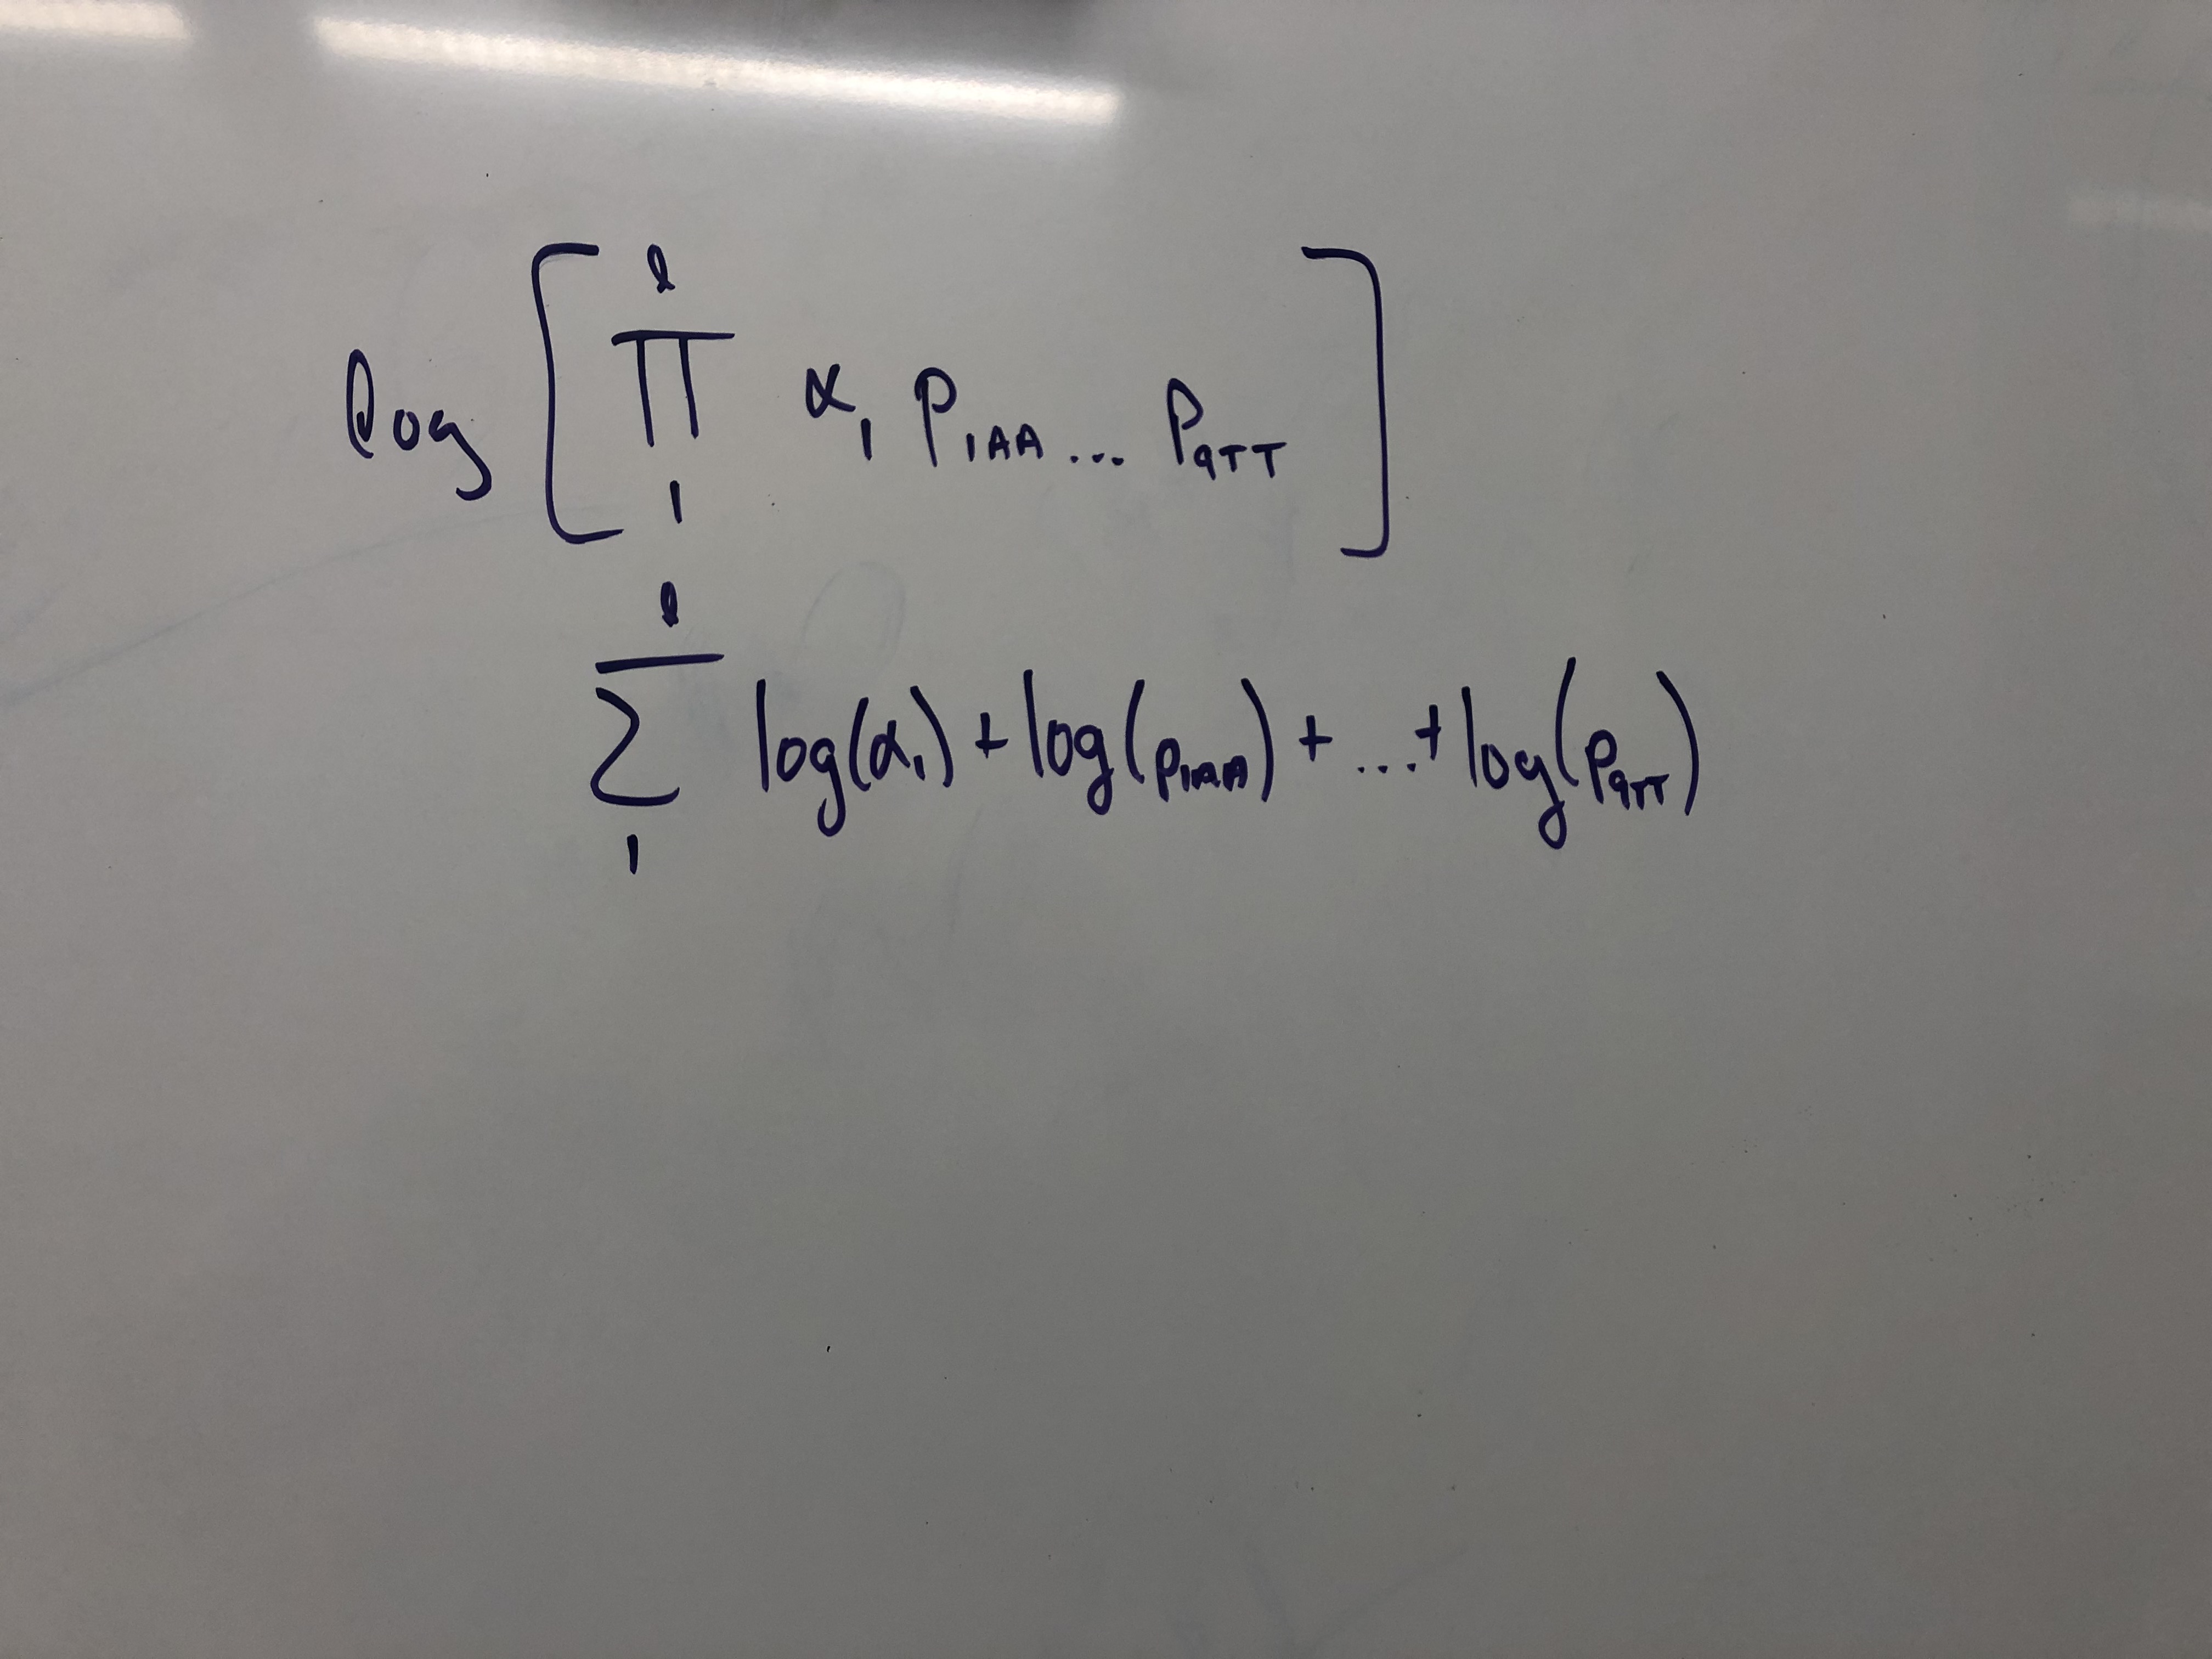 log [ ∏_1^ℓ α_1 p_1AA ... p_9TT ]
∑_1^ℓ log(α_1) + log(p_1AA) + ... + log(p_9TT)